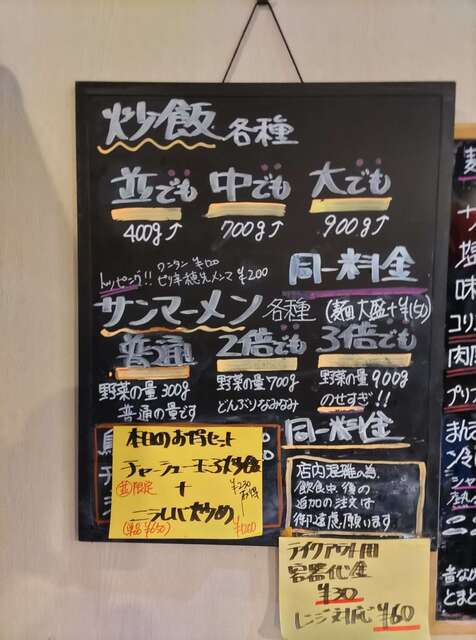 炒飯 各種
並でも 中でも 大でも
400g↑ 700g↑ 900g↑
トッピング!! ワンタン ¥100
ピリ辛穂先メンマ ¥200
同一料金
サンマーメン 各種 (麺大盛+¥150)
普通 2倍でも 3倍でも
野菜の量300g 野菜の量700g 野菜の量900g
普通の量です どんぶりなみなみ のせすぎ!!
同一料金
本日のお得セット
チャーシュー玉子炒飯
(並)限定 + ¥230
お得
ニラレバ炒め
(単品¥650)
店内混雑の為、
飲食中、後の
追加の注文は
御遠慮願います
テイクアウト用
容器代金
¥30
レンジ対応 ¥60
麺
塩
味
コリ
肉
プリ
まん